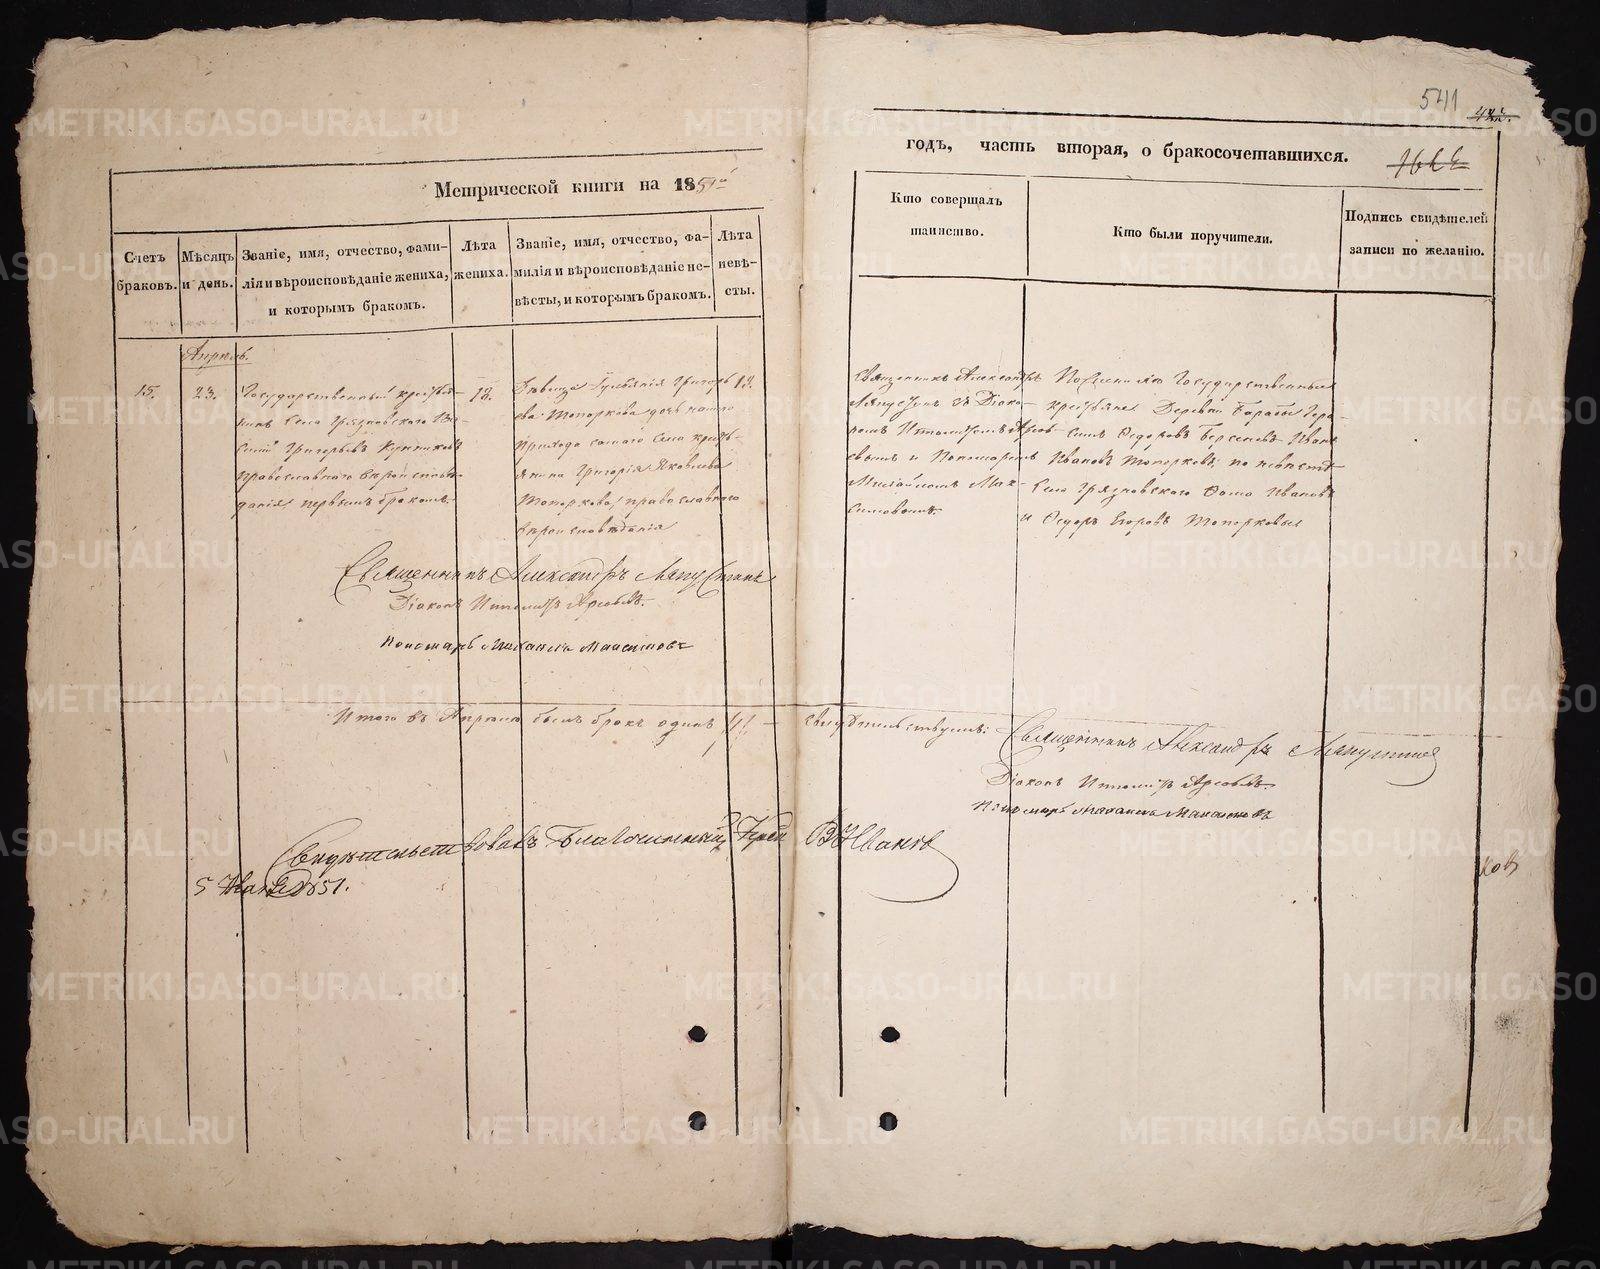 541
422.
Метрической книги на 1851й
годъ, часть вторая, о бракосочетавшихся.
Счетъ браковъ.
Мѣсяцъ и день.
Званіе, имя, отчество, фами-
лія и вѣроисповѣданіе жениха,
и которымъ бракомъ.
Лѣта
жениха.
Званіе, имя, отчество, фа-
милія и вѣроисповѣданіе не-
вѣсты, и которымъ бракомъ.
Лѣта
невѣ-
сты.
Кто совершалъ
таинство.
Кто были поручители.
Подпись свидѣтелей
записи по желанію.
Апрѣль.
15.
23.
Государственный крестья-
нинъ Села Грязновскаго Ва-
силій Григорьевъ
православнаго вѣроисповѣ-
данія первымъ бракомъ.
18.
Дѣвица Григорь-
ева Топоркова дочь нашего
прихода тогоже Села кресть-
янина Григорія Яковлева
Топоркова, православнаго
вѣроисповѣданія
Священникъ Александръ
Ляпустинъ съ Діако-
номъ Ипполитомъ Арсе-
евымъ и Пономаремъ
Михайломъ Мак-
симовымъ.
По женихѣ Государственные
крестьяне Деревни
Федоровъ Берсеневъ Иванъ
Ивановъ Топорковъ; по невѣстѣ
Села Грязновскаго Фома Ивановъ
и Федоръ Егоровъ Топорковы
Священникъ Александръ Ляпустинъ
Діаконъ Ипполитъ
Пономарь Михаилъ Максимовъ
Итого въ Апрѣлѣ былъ бракъ одинъ /1/ — свидѣтельствуемъ:
Священникъ Александръ Ляпустинъ
Діаконъ Ипполитъ
Пономарь Михаилъ Максимовъ
Свидѣтельствовалъ Благочинный Іерей В. Ивановъ
5 1851.
ков
METRIKI.GASO-URAL.RU